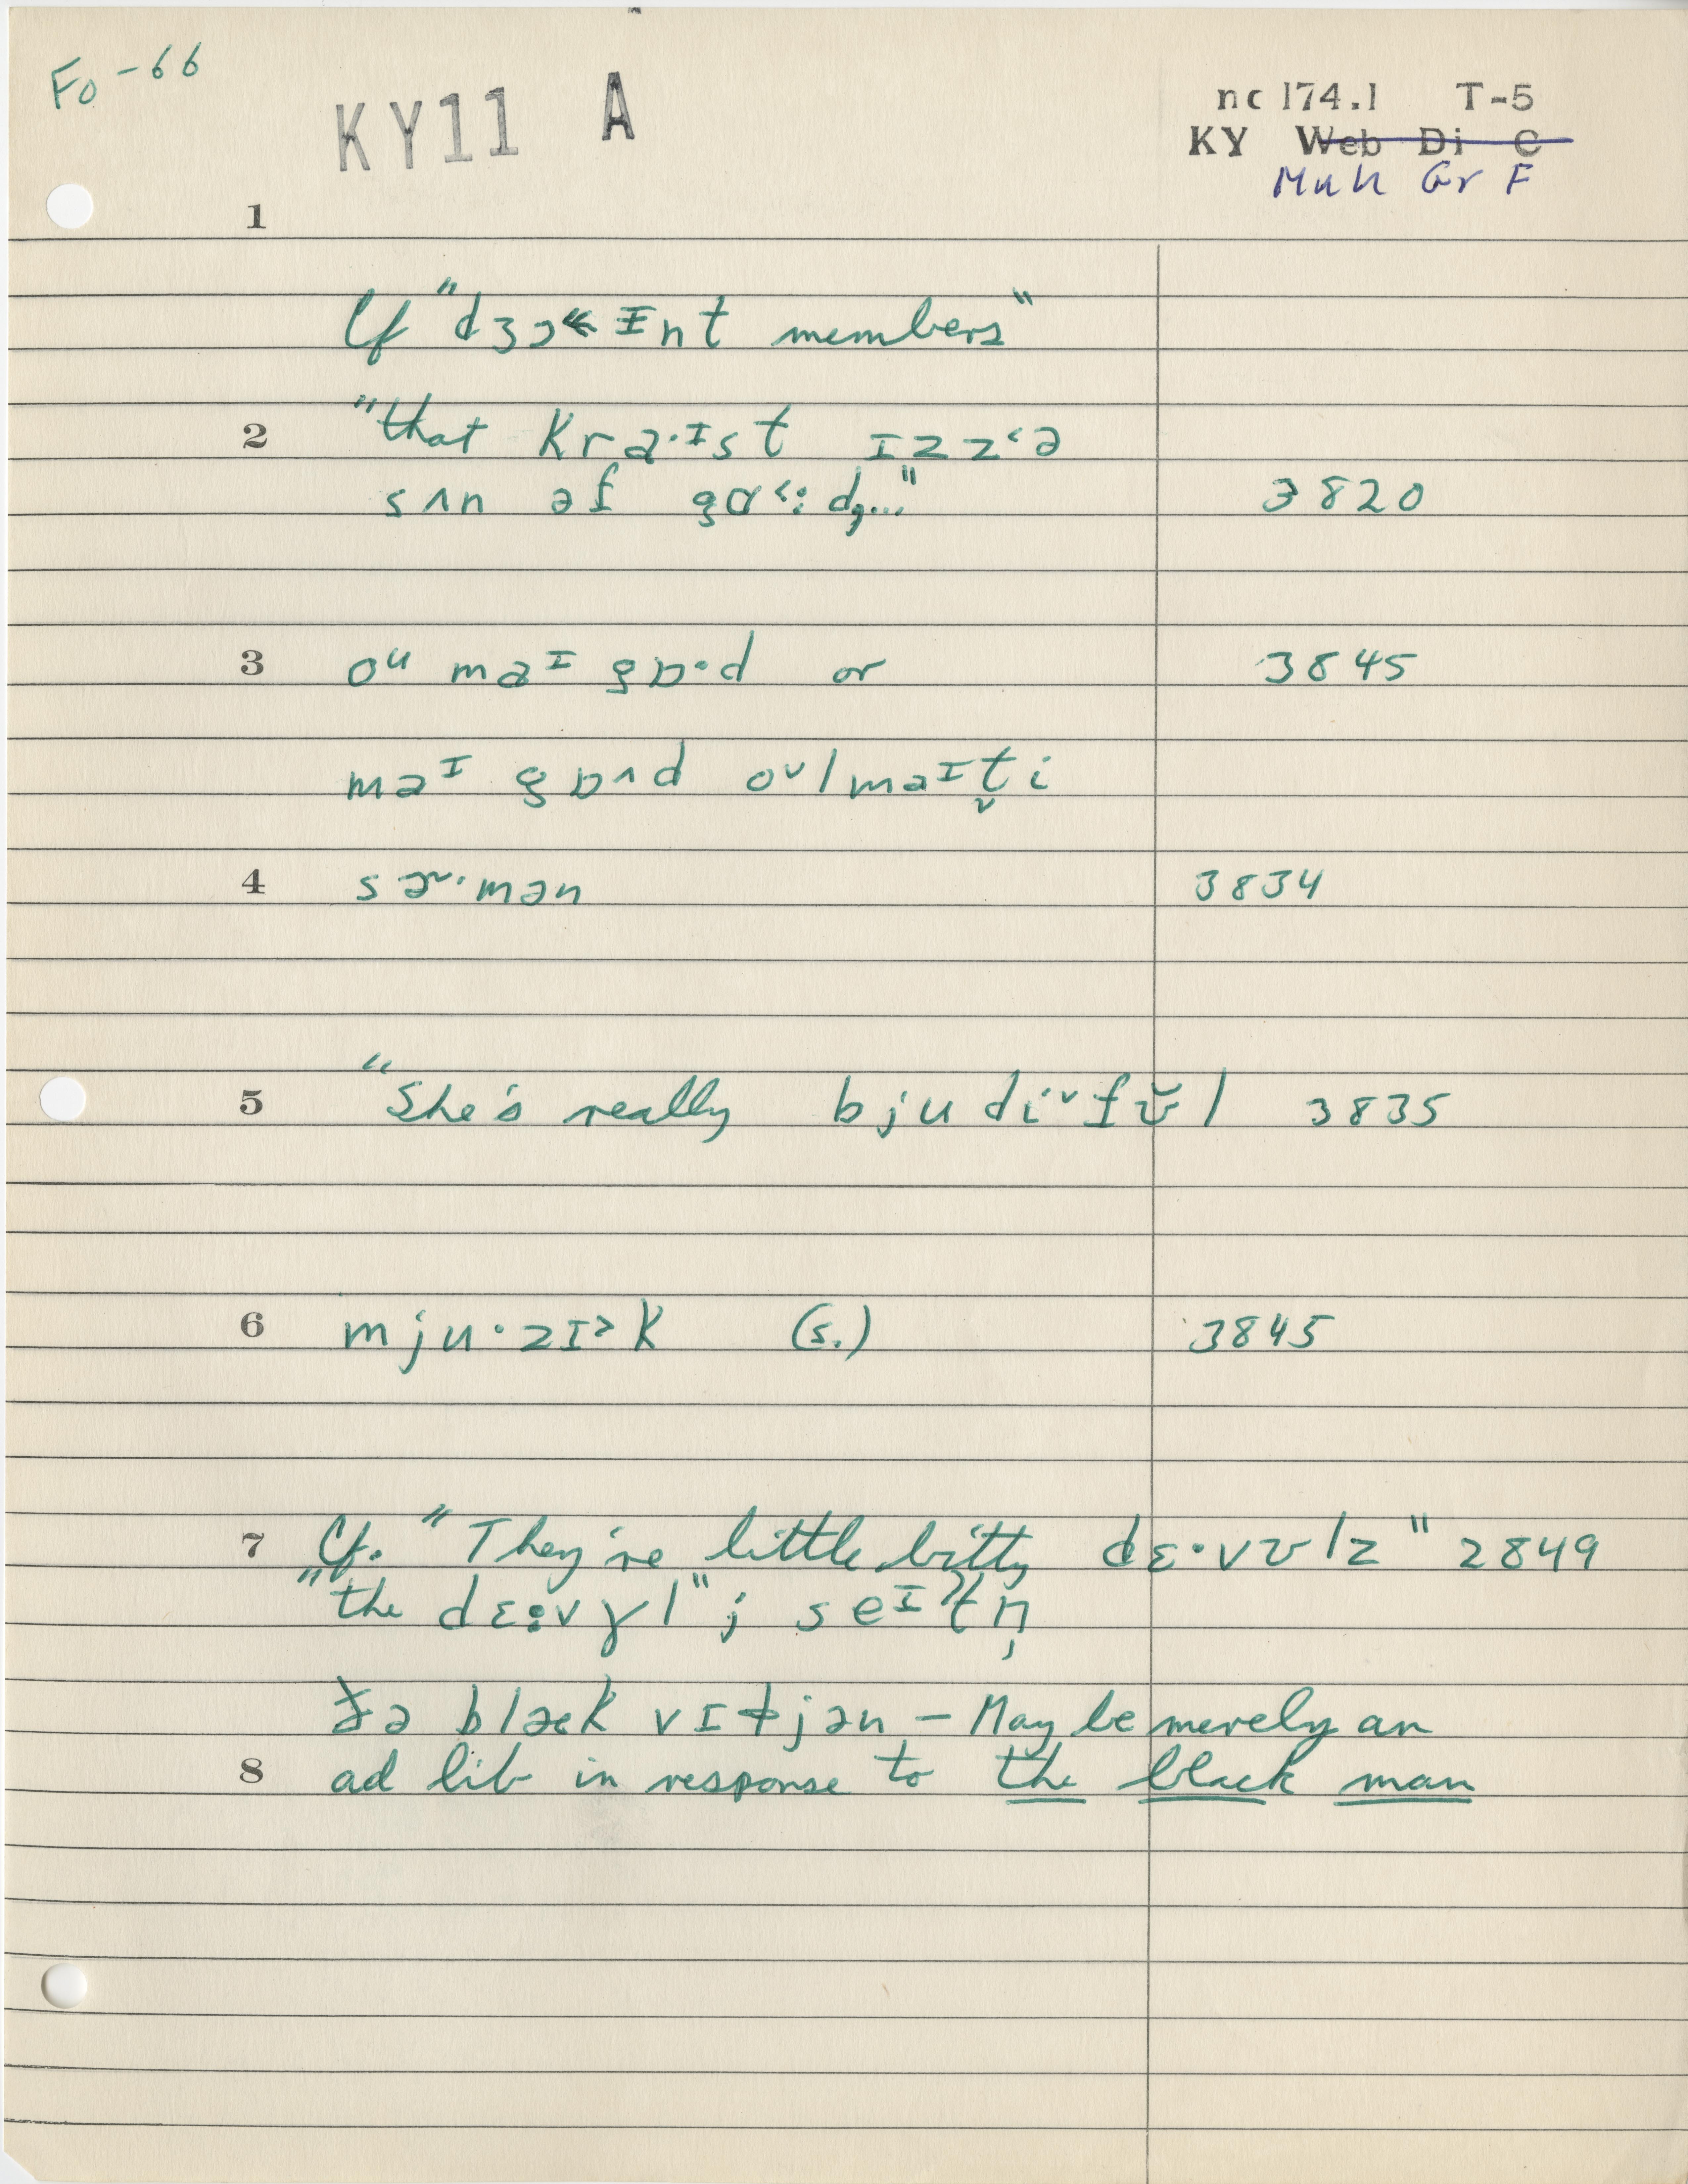 Fo-66
KY11 A
nc 174.1 T-5
KY Web Di C
Muh Gr F
1
Cf "dʒɔ≪ɪnt members"
2 "that kra·ɪst ɪzz˂ə
sʌn əf gɑ˂:d,..." 3820
3 oᵘ maᶦ gɒ·d or 3845
maᶦ gɒ^d oᵛlmaᶦt̬i
4 sɚ·mən 3834
5 "She's really bjudiᵛfʊ̆l 3835
6 mju·zɪ˃k (s.) 3845
7 Cf. "They're little bitty dɛ·vʊlz" 2849
"the dɛ:vɣl"; seᶦʔtn̩
ðə blæk vɪɫjən – May be merely an
8 ad lib in response to the black man